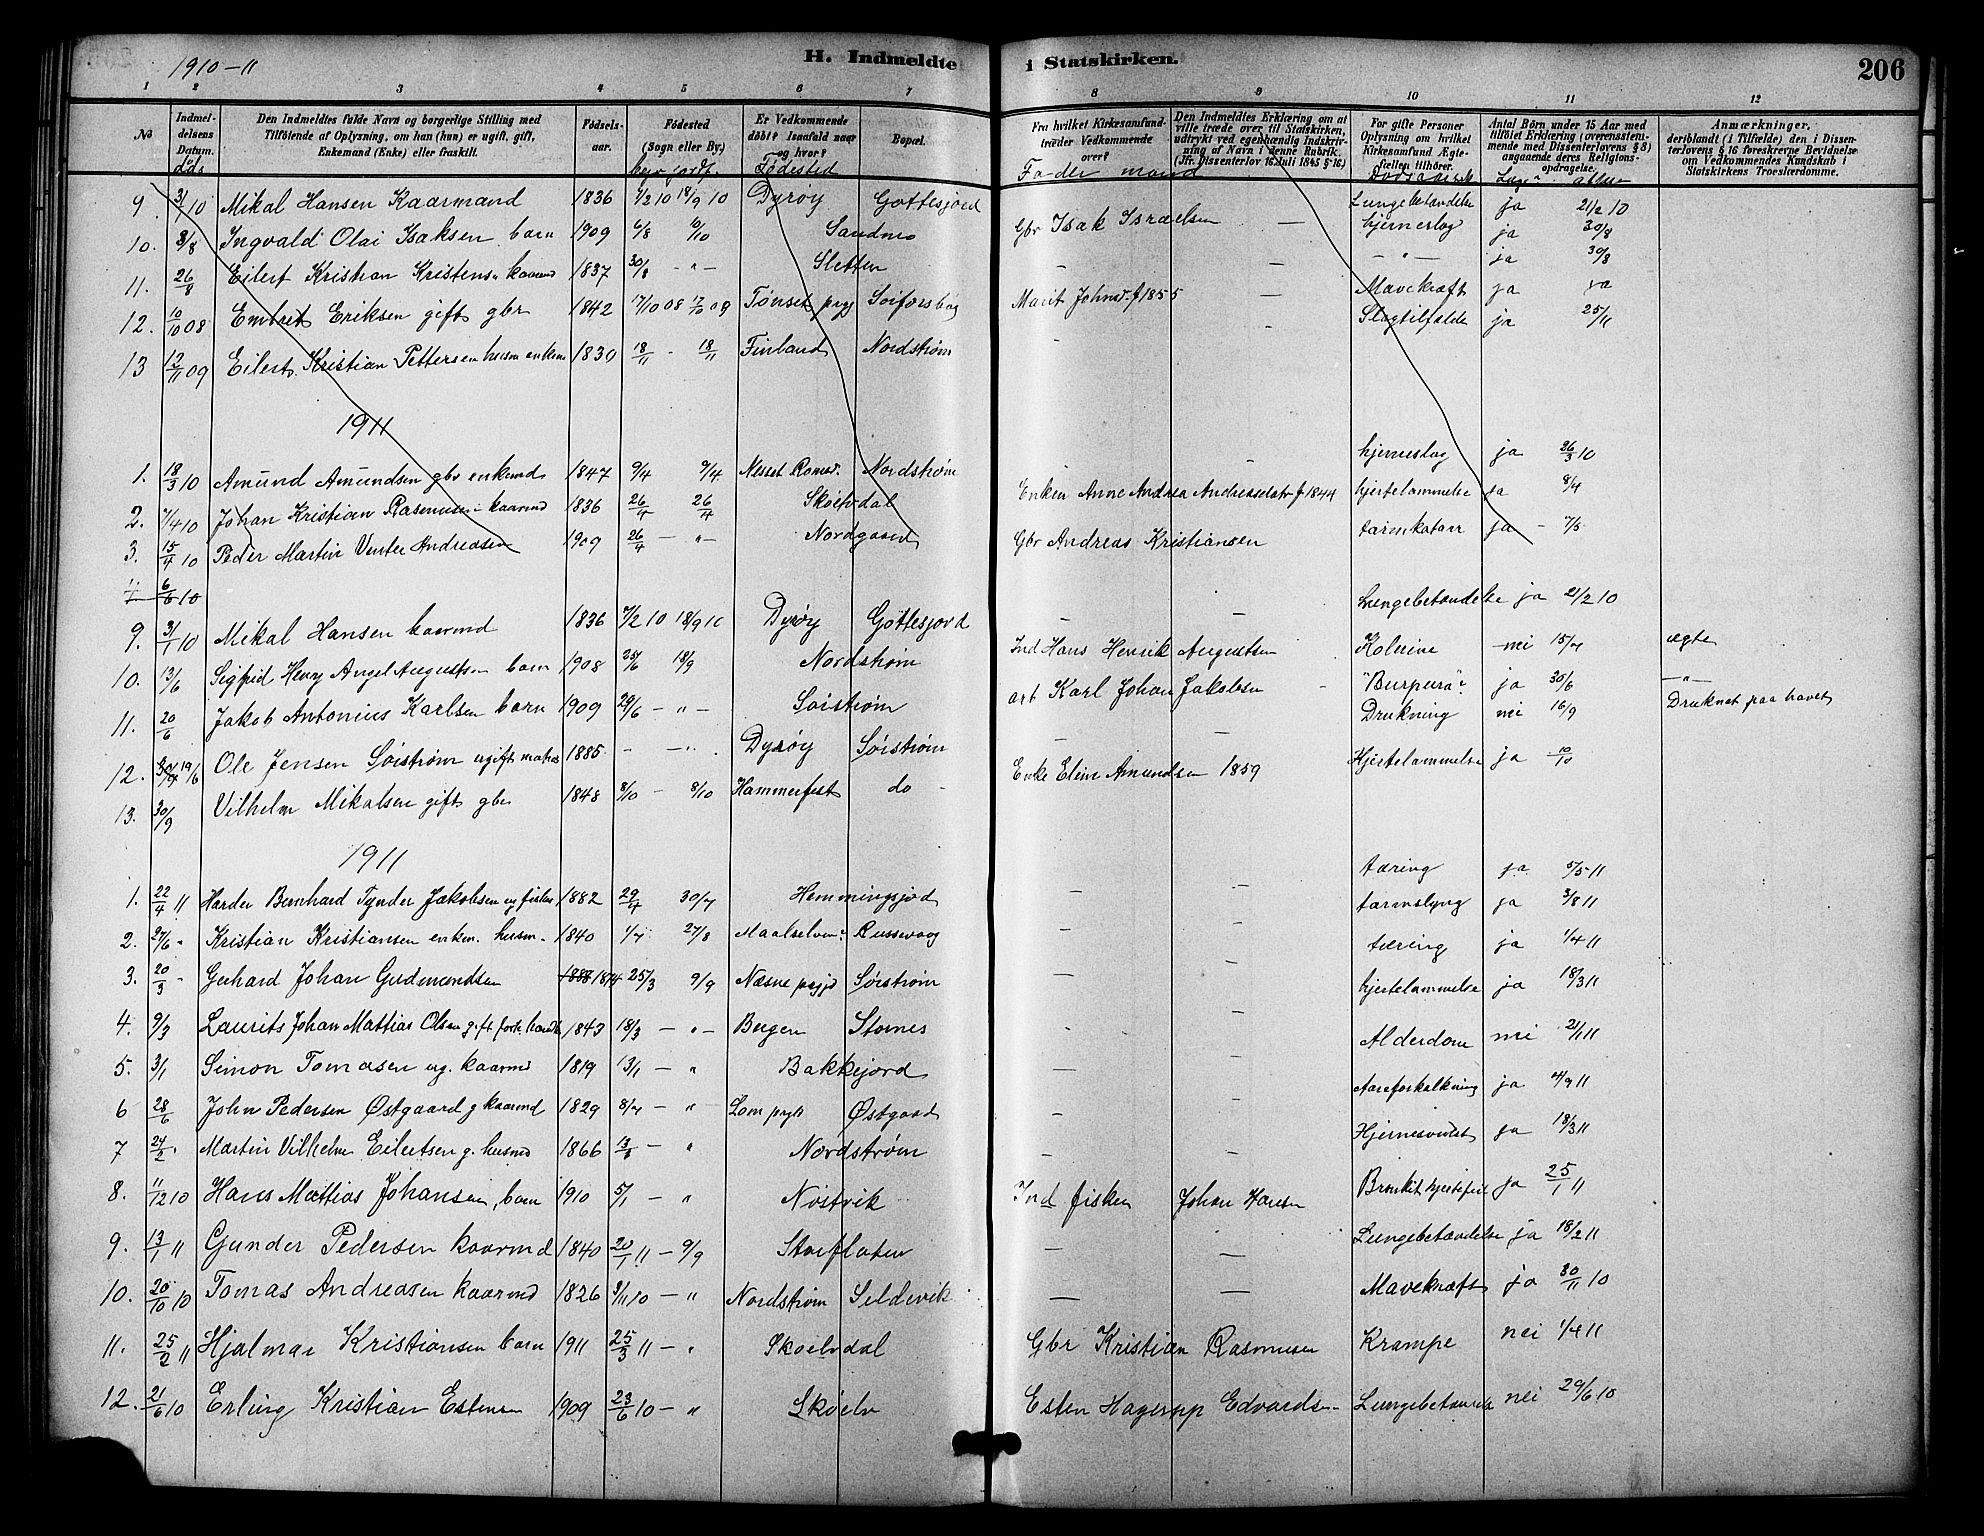 1910-11
H. Indmeldte i Statskirken.
206
1 2 3 4 5 6 7 8 9 10 11 12
No
Indmel-
delsens
Datum.
Den Indmeldtes fulde Navn og borgerlige Stilling med
Tilføiende af Oplysning, om han (hun) er ugift, gift,
Enkemand (Enke) eller fraskilt.
Fødsels-
aar.
Fødested
(Sogn eller By.)
Er Vedkommende
døbt? Isaafald naar
og hvor?
Bopæl.
Fra hvilket Kirkesamfund-
træder Vedkommende
over?
Den Indmeldtes Erklæring om at
ville træde over til Statskirken,
udtrykt ved egenhændig Indskriv-
ning af Navn i denne Rubrik.
(Jfr. Dissenterlov 16 Juli 1845 § 16.)
For gifte Personer
Oplysning om hvilket
Kirkesamfund Ægte-
fællen tilhører.
Antal Børn under 15 Aar med
tilføiet Erklæring (overensstem-
mende med Dissenterlovens § 8)
angaaende deres Religions-
opdragelse.
Anmærkninger.
deriblandt (i Tilfælde) den i Dissen-
terlovens § 16 foreskrevne Bevidnelse
om Vedkommendes Kundskab i
Statskirkens Troeslærdomme.
døds Fødested Dødsaarsak
9. 3/1 10 Mikal Hansen Kaarmand 1836 7/2 10 18/9 10 Dyrøy Gottesjord Lungebetændelse ja 21/2 10
10. 3/8 Ingvald Olai Isaksen barn 1909 6/8 Sandnes Gbr Isak Israelsen — hjerneslag ja 30/8
11. 26/8 Eilert Kristian Kristens. kaarmd 1837 30/8 - " - Sletten — — - " - ja 30/8
12. 10/10 08 Embret Eriksen gift gbr 1842 17/10 08 Tønset Marit Johnsd. f 1855 — Mavekræft ja
13 12/11 09 Eilert Kristian Pettersen husm enkem 1830 18/11 - 18/11 Finland Nordstrøm Slagtilfælde ja 25/11
1911
1. 18/3 10 Amund Amundsen gbr enkemd 1847 9/4 9/4 Nesset Romsd. Nordstrøm hjerneslag ja 26/3 10
2. 7/4 10 Johan Kristian Rasmussen kaarmd 1836 26/4 26/4 Skøelvdal Enken Anne Andrea Andreasdatr f 1844 hjertelammelse ja 8/4
3. 15/4 10 Peder Martin Venter Andreasen 1909 26/4 - " - Nordgaard Gbr Andreas Kristiansen tarmkatarr ja - 7/5
4 6/6 10
9. 3/1 10 Mikal Hansen kaarmd 1836 7/2 10 18/9 10 Dyrøy Gottesjord — Lungebetændelse ja 21/2 10
10. 13/6 Sigfred Henry Angel Augustsen barn 1908 25/6 18/9 Nordstrøm Ind Hans Henrik Augustsen Kolerine nei 15/7 ægte
11. 20/6 Jakob Antonius Karlsen barn 1909 29/6 - " - Sørstrøm arb Karl Johan Jakobsen "Burpura" ja 30/6 - " -
12. 19/6 Ole Jensen Sørstrøm ugift matros 1885 Dyrøy Sørstrøm — — Drukning nei 16/9 Druknet paa havet
13. 30/9 Vilhelm Mikalsen gift gbr 1848 8/10 - 8/10 Hammerfest do Enke Eline Amundsen 1859 Hjertelammelse ja 10/10
1911
1. 22/4 11 Harder Bernhard Tynder Jakobsen ug fisker 1882 29/4 30/7 Hemmingsjord — — tæring ja 5/5 11
2. 27/6 - Kristian Kristiansen enkem. husm. 1840 1/7 27/8 Maalselven Russevaag — — tarmslyng ja 3/8 11
3. 20/3 - Gerhard Johan Gudmundsen 1874 25/3 9/9 Næsne prgjd Sørstrøm — — tæring ja 1/4 11
4. 9/3 Laurits Johan Mattias Olsen gift forh. handl 1843 18/3 - " - Bergen Stornes hjertelammelse ja 18/3 11
5. 3/1 Simon Tomasen ug. kaarmd 1819 13/1 - " Bakkejord — — Alderdom nei 21/1 11
6 28/6 John Pedersen Østgaard g kaarmd 1829 8/7 - " Lom prgd Østgaard — — Aareforkalkning ja 4/9 11
7 24/2 Martin Vilhelm Eilertsen g. husmd 1866 - " Nordstrøm — Hjernesvulst ja 18/3 11
8. 11/12 10 Hans Mattias Johansen, barn 1910 5/1 - " Nøstvik Ind fisker Johan Hansen Bronkit hjertefeil ja 25/1 11
9. 13/1 11 Gunder Pedersen kaarmd 1840 20/1 11 - 9/9 Storfloten — — Lungebetændelse ja 18/2 11
10. 20/10 10 Tomas Andreasen kaarmd 1826 3/11 10 - " Nordstrøm Seldevik — — Mavekræft ja 30/11 10
11. 25/2 11 Hjalmar Kristiansen barn 1911 25/3 11 - " Skøelvdal Gbr Kristian Rasmussen Krampe nei 1/4 11
12. 21/6 10 Erling Kristian Estensen 1909 23/6 10 - " Skøelv Esten Hagerup Edvards. Lungebetændelse nei 29/6 10